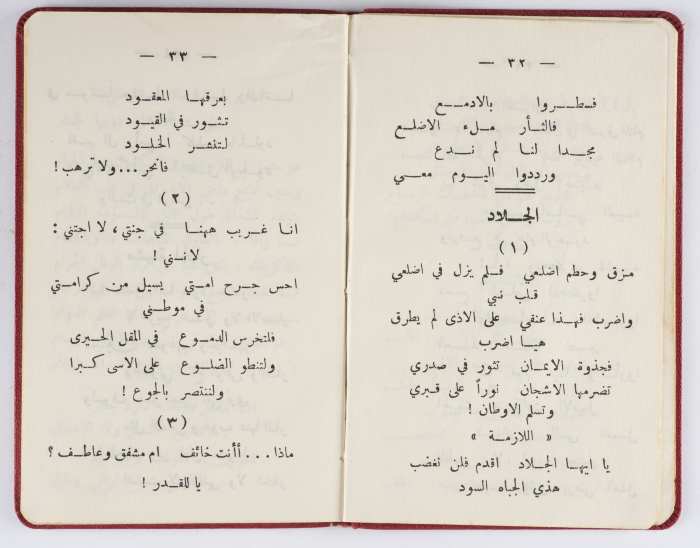 — ٣٢ —
فسطــروا بالادمـــع
فالثــأر مــلء الاضلــع
مجــدا لنــا لم نــدع
ورددوا اليــوم معــي
الجــلاد
(١)
مزق وحطم اضلعي فلم يزل في اضلعي
قلب نبي
واضرب فهــذا عنقي على الاذى لم يطرق
هيــا اضرب
فجذوة الايمــان تثور في صدري
تضرمها الاشجان نوراً على قبري
وتسلم الاوطان !
« اللازمة »
يا ايهــا الجــلاد اقدم فلن نغضب
هذي الجباه السود
— ٣٣ —
بعرقهــا المعقــود
تثــور في القيــود
لتنشــر الخلــود
فانحر ... ولا ترهب !
(٢)
انا غــريب ههنــا في جنتي ، لا اجتني :
لانــني !
احس جــرح امــتي يسيل من كرامــتي
في موطــني
فلتخرس الدمــوع في المقل الحــيرى
ولتنطو الضلــوع على الاسى كــبرا
ولننتصر بالجوع !
(٣)
ماذا ... أأنت خائف ام مشفق وعاطــف ؟
يا للقــدر !